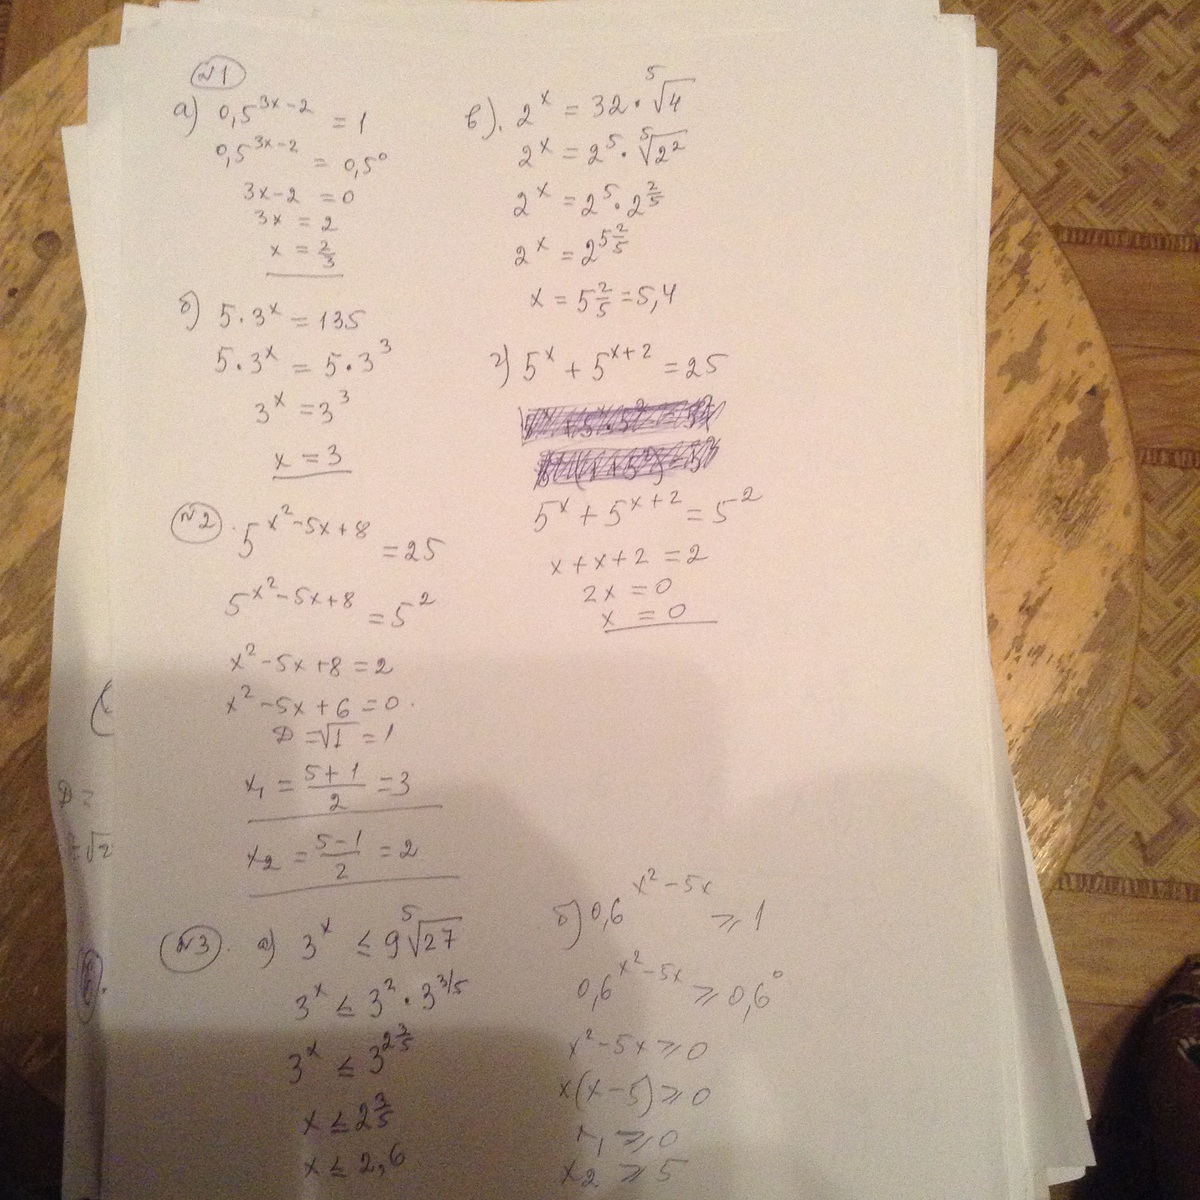 №1
а) 0,5^(3x-2) = 1
0,5^(3x-2) = 0,5^0
3x-2 = 0
3x = 2
x = 2/3
б) 5·3^x = 135
5·3^x = 5·3^3
3^x = 3^3
x = 3
в). 2^x = 32·⁵√4
2^x = 2^5·⁵√2^2
2^x = 2^5·2^(2/5)
2^x = 2^(5 2/5)
x = 5 2/5 = 5,4
г) 5^x + 5^(x+2) = 25
5^x + 5^(x+2) = 5^2
x + x + 2 = 2
2x = 0
x = 0
№2. 5^(x^2-5x+8) = 25
5^(x^2-5x+8) = 5^2
x^2-5x+8 = 2
x^2-5x+6 = 0.
D = √1 = 1
x₁ = (5+1)/2 = 3
x₂ = (5-1)/2 = 2
№3. а) 3^x ≤ 9 ⁵√27
3^x ≤ 3^2·3^(3/5)
3^x ≤ 3^(2 3/5)
x ≤ 2 3/5
x ≤ 2,6
б) 0,6^(x^2-5x) ⩾ 1
0,6^(x^2-5x) ⩾ 0,6^0
x^2-5x ⩾ 0
x(x-5) ⩾ 0
x₁ ⩾ 0
x₂ ⩾ 5